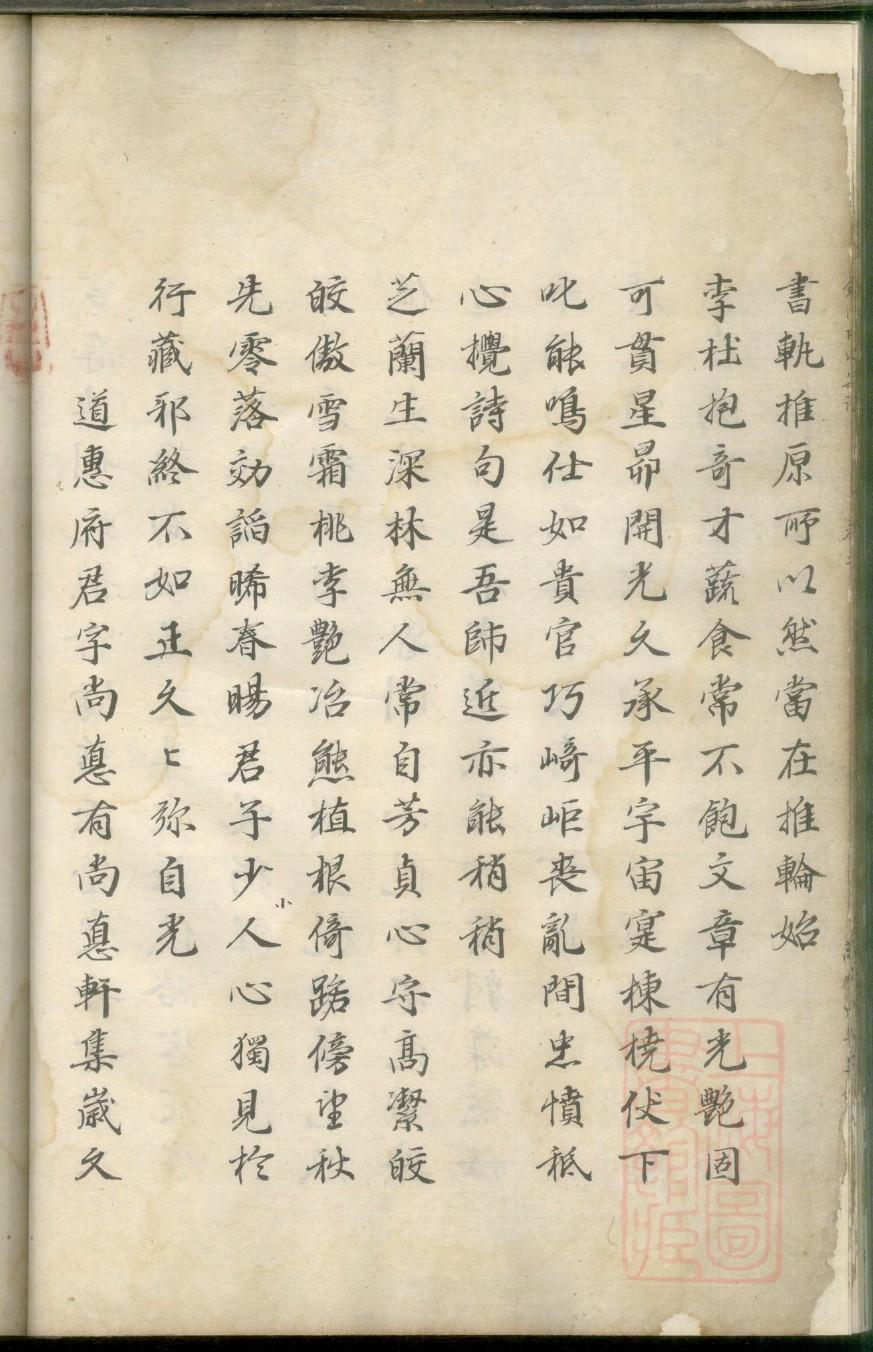 書軌推原所以然當在推輪始
李杜抱奇才蔬食常不飽文章有光艷固
可貫星昴開光久承平宇宙寔棟橈伏下
叱能鳴仕如貴官巧崎岠喪亂間忠憤秖
心攪詩句是吾師近亦能稍稍
芝蘭生深林無人常自芳貞心守高潔皎
皎傲雪霜桃李艷冶態植根倚踞傍望秋
先零落効謟晞春暘君子少人心獨見於
小
行藏邪終不如正久匕弥自光
道惠府君字尚悳有尚悳軒集歲久